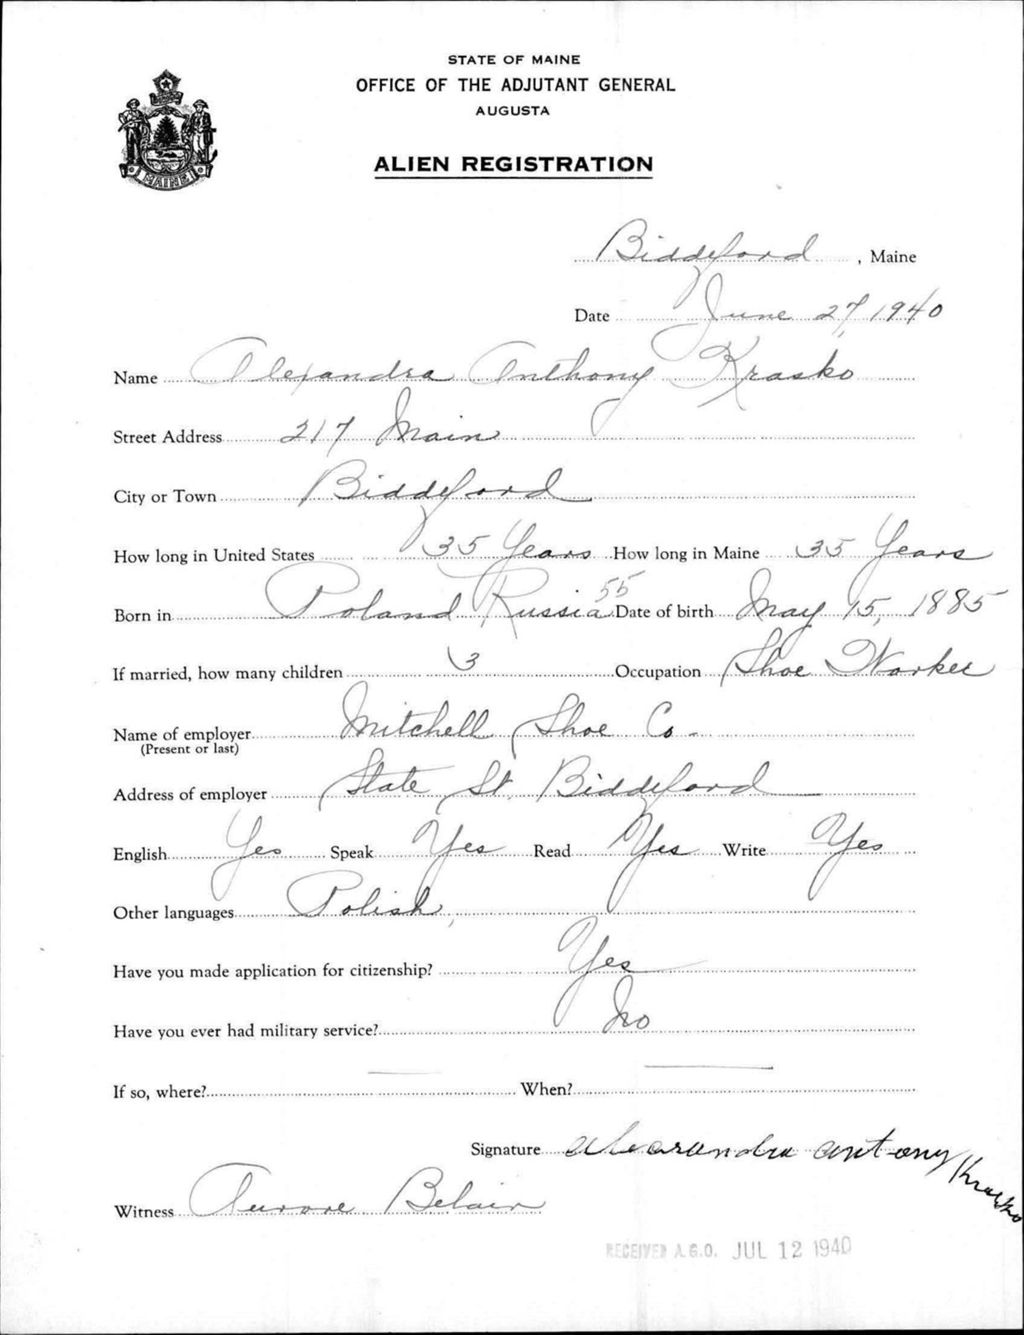 STATE OF MAINE
OFFICE OF THE ADJUTANT GENERAL
AUGUSTA
MAINE
ALIEN REGISTRATION
Biddeford, Maine
Date June 27, 1940
Name Alexandra Anthony Krasko
Street Address 217 Main
City or Town Biddeford
How long in United States 35 Years How long in Maine 35 Years
55
Born in Poland Russia Date of birth May 15, 1885
If married, how many children 3 Occupation Shoe Worker
Name of employer Mitchell Shoe Co.
(Present or last)
Address of employer State St. Biddeford
English Yes Speak Yes Read Yes Write Yes
Other languages Polish,
Have you made application for citizenship? Yes
Have you ever had military service? No
If so, where? — When? —
Signature alexandra antony Krasko
Witness Aurore Belair
RECEIVED A.G.O. JUL 12 1940